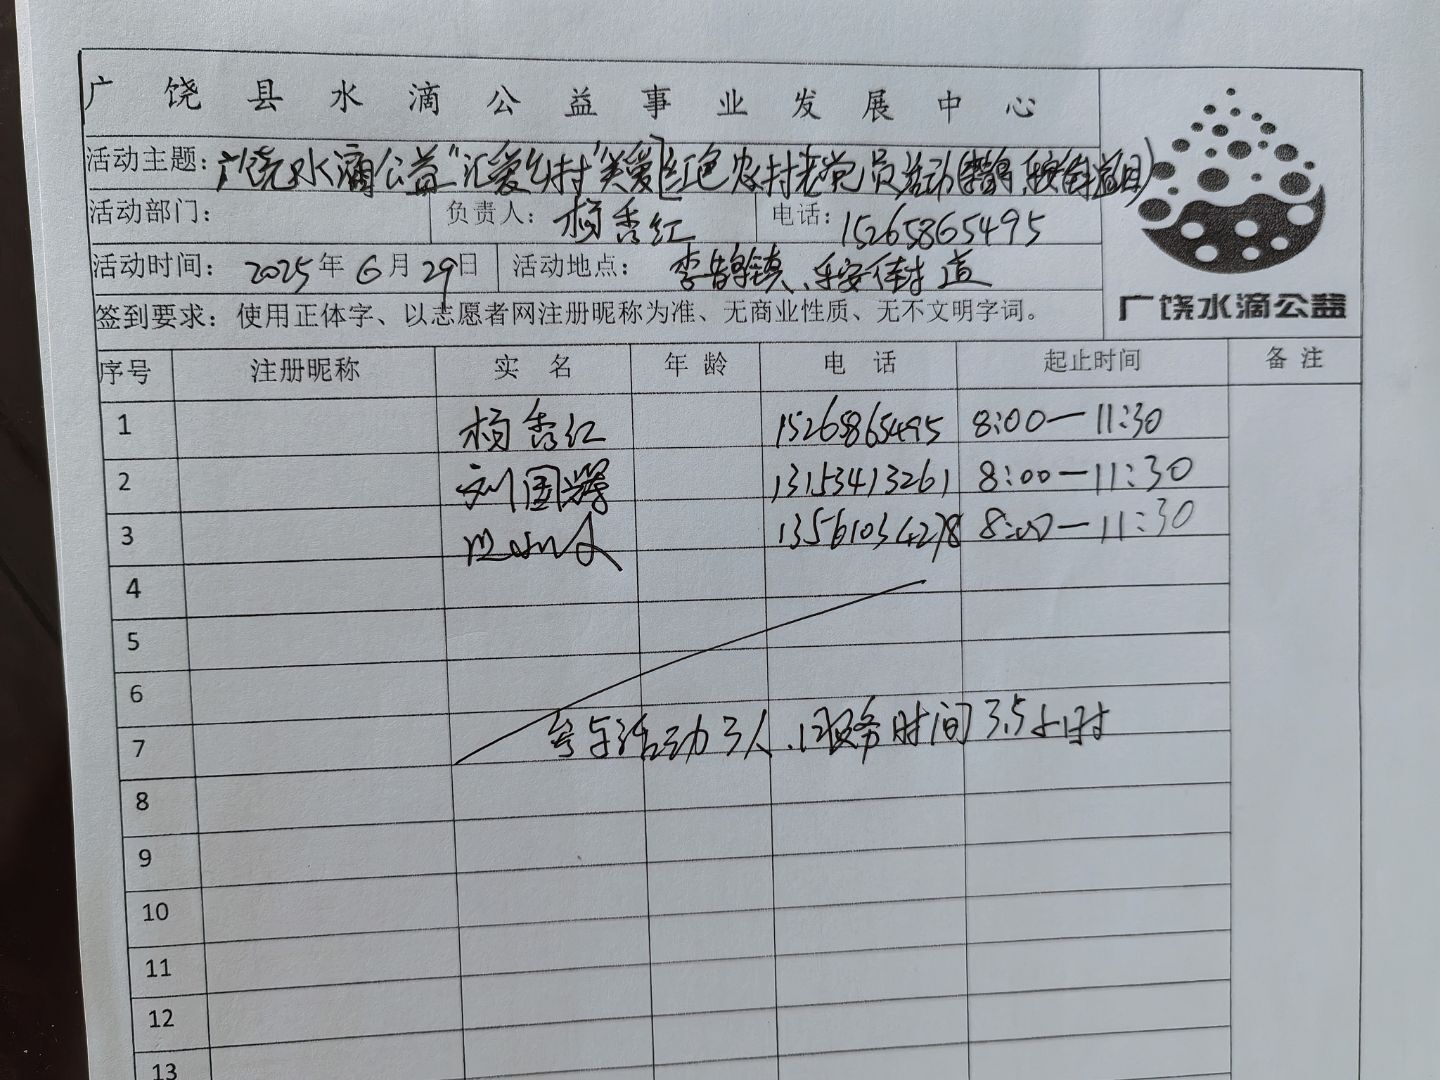 广饶县水滴公益事业发展中心
活动主题：广饶水滴公益“汇爱乡村”关爱红色农村老党员活动
活动部门： 负责人：杨秀红 电话：15265865495
活动时间：2025年6月29日 活动地点：李鹊镇、乐安街道
签到要求：使用正体字、以志愿者网注册昵称为准、无商业性质、无不文明字词。
广饶水滴公益
序号 注册昵称 实名 年龄 电话 起止时间 备注
1 杨秀红 15265865495 8:00—11:30
2 刘国 13153413261 8:00—11:30
3 13561034278 8:00—11:30
4
5
6
7 参与活动3人、服务时间3.5小时
8
9
10
11
12
13